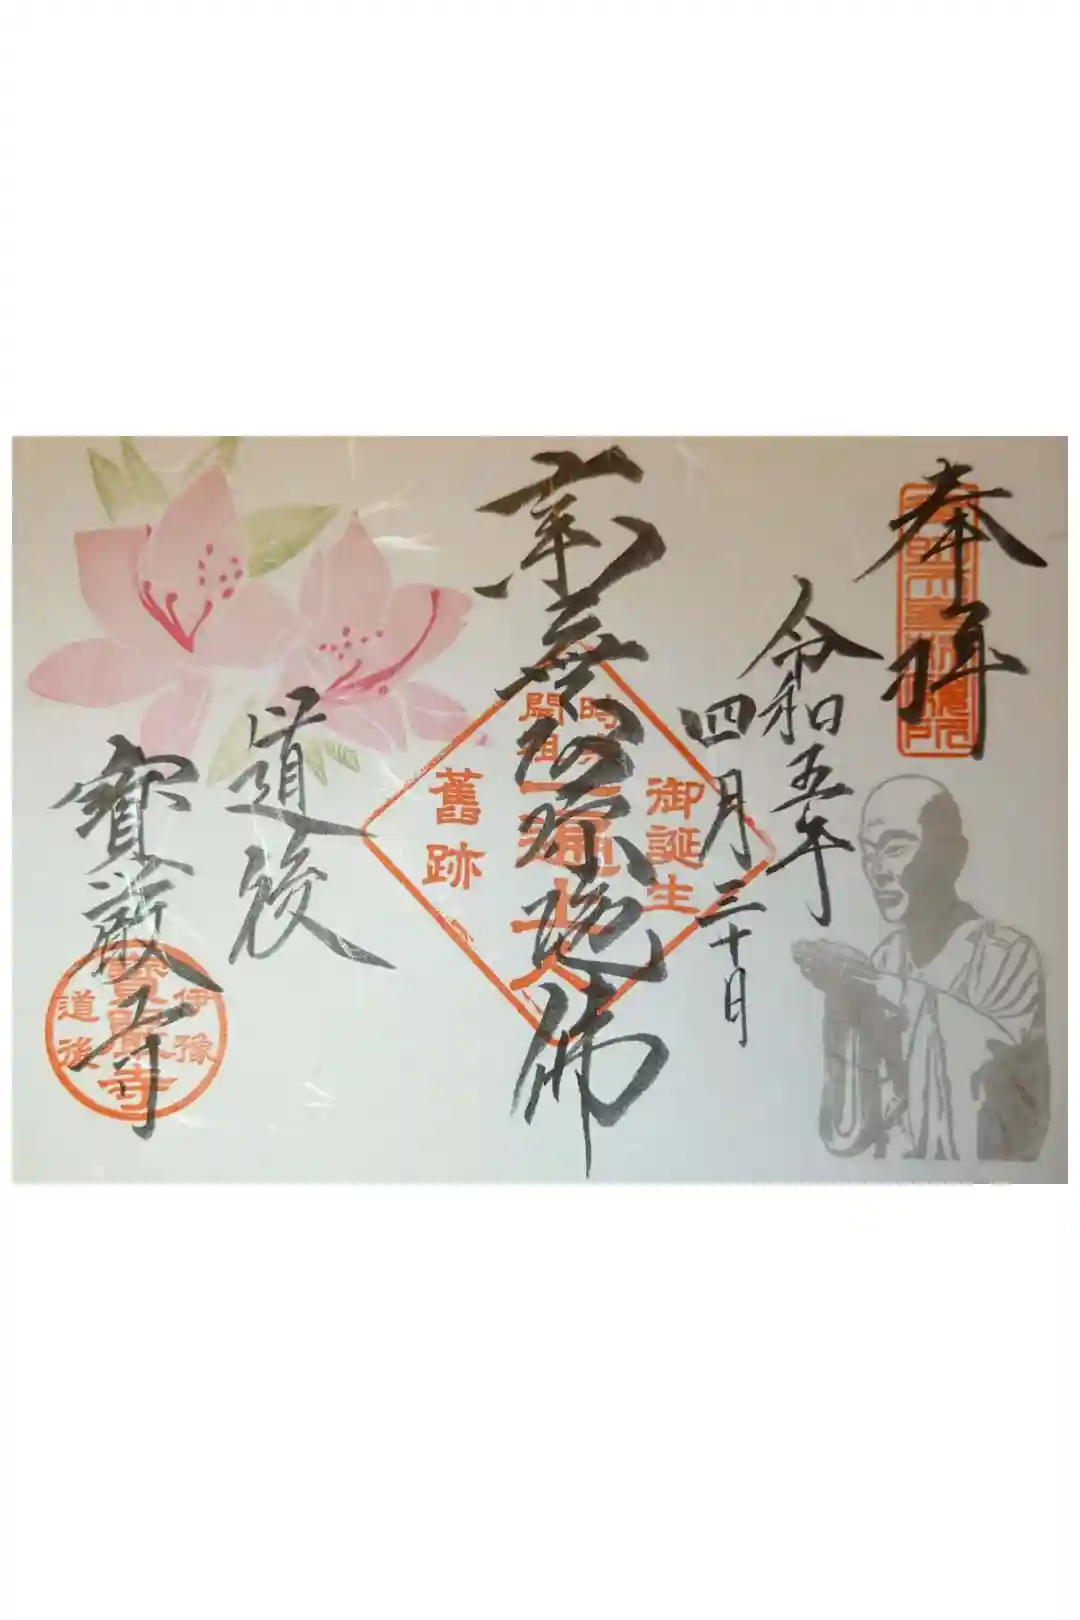 奉拝
令和五年
四月三十日
南無阿弥陀佛
御誕生
時宗
開祖
一遍上人
舊跡
道後
寳厳寺
伊豫
寳嚴寺
道後